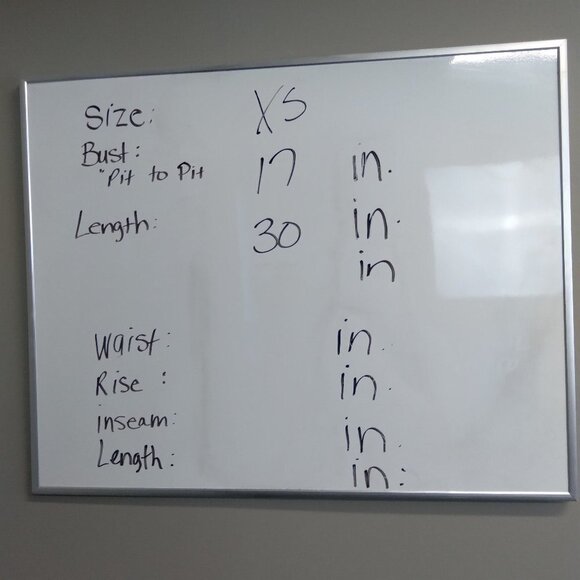 Size: XS
Bust: 17 in.
"Pit to Pit
Length: 30 in.
in
Waist: in.
Rise : in.
inseam: in.
Length: in.